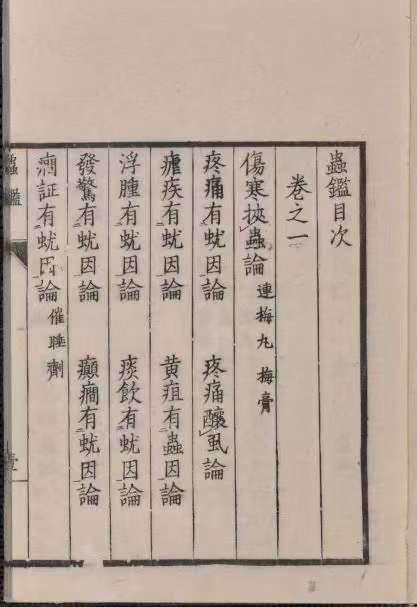 蟲鑑目次
卷之一
傷寒挾蟲論 連梅丸 梅膏
疼痛有蚘因論 疼痛釀虱論
瘧疾有蚘因論 黄疽有蟲因論
浮腫有蚘因論 痰飲有蚘因論
發驚有蚘因論 癲癇有蚘因論
痾証有蚘因論 催睡劑
蟲鑑
壹